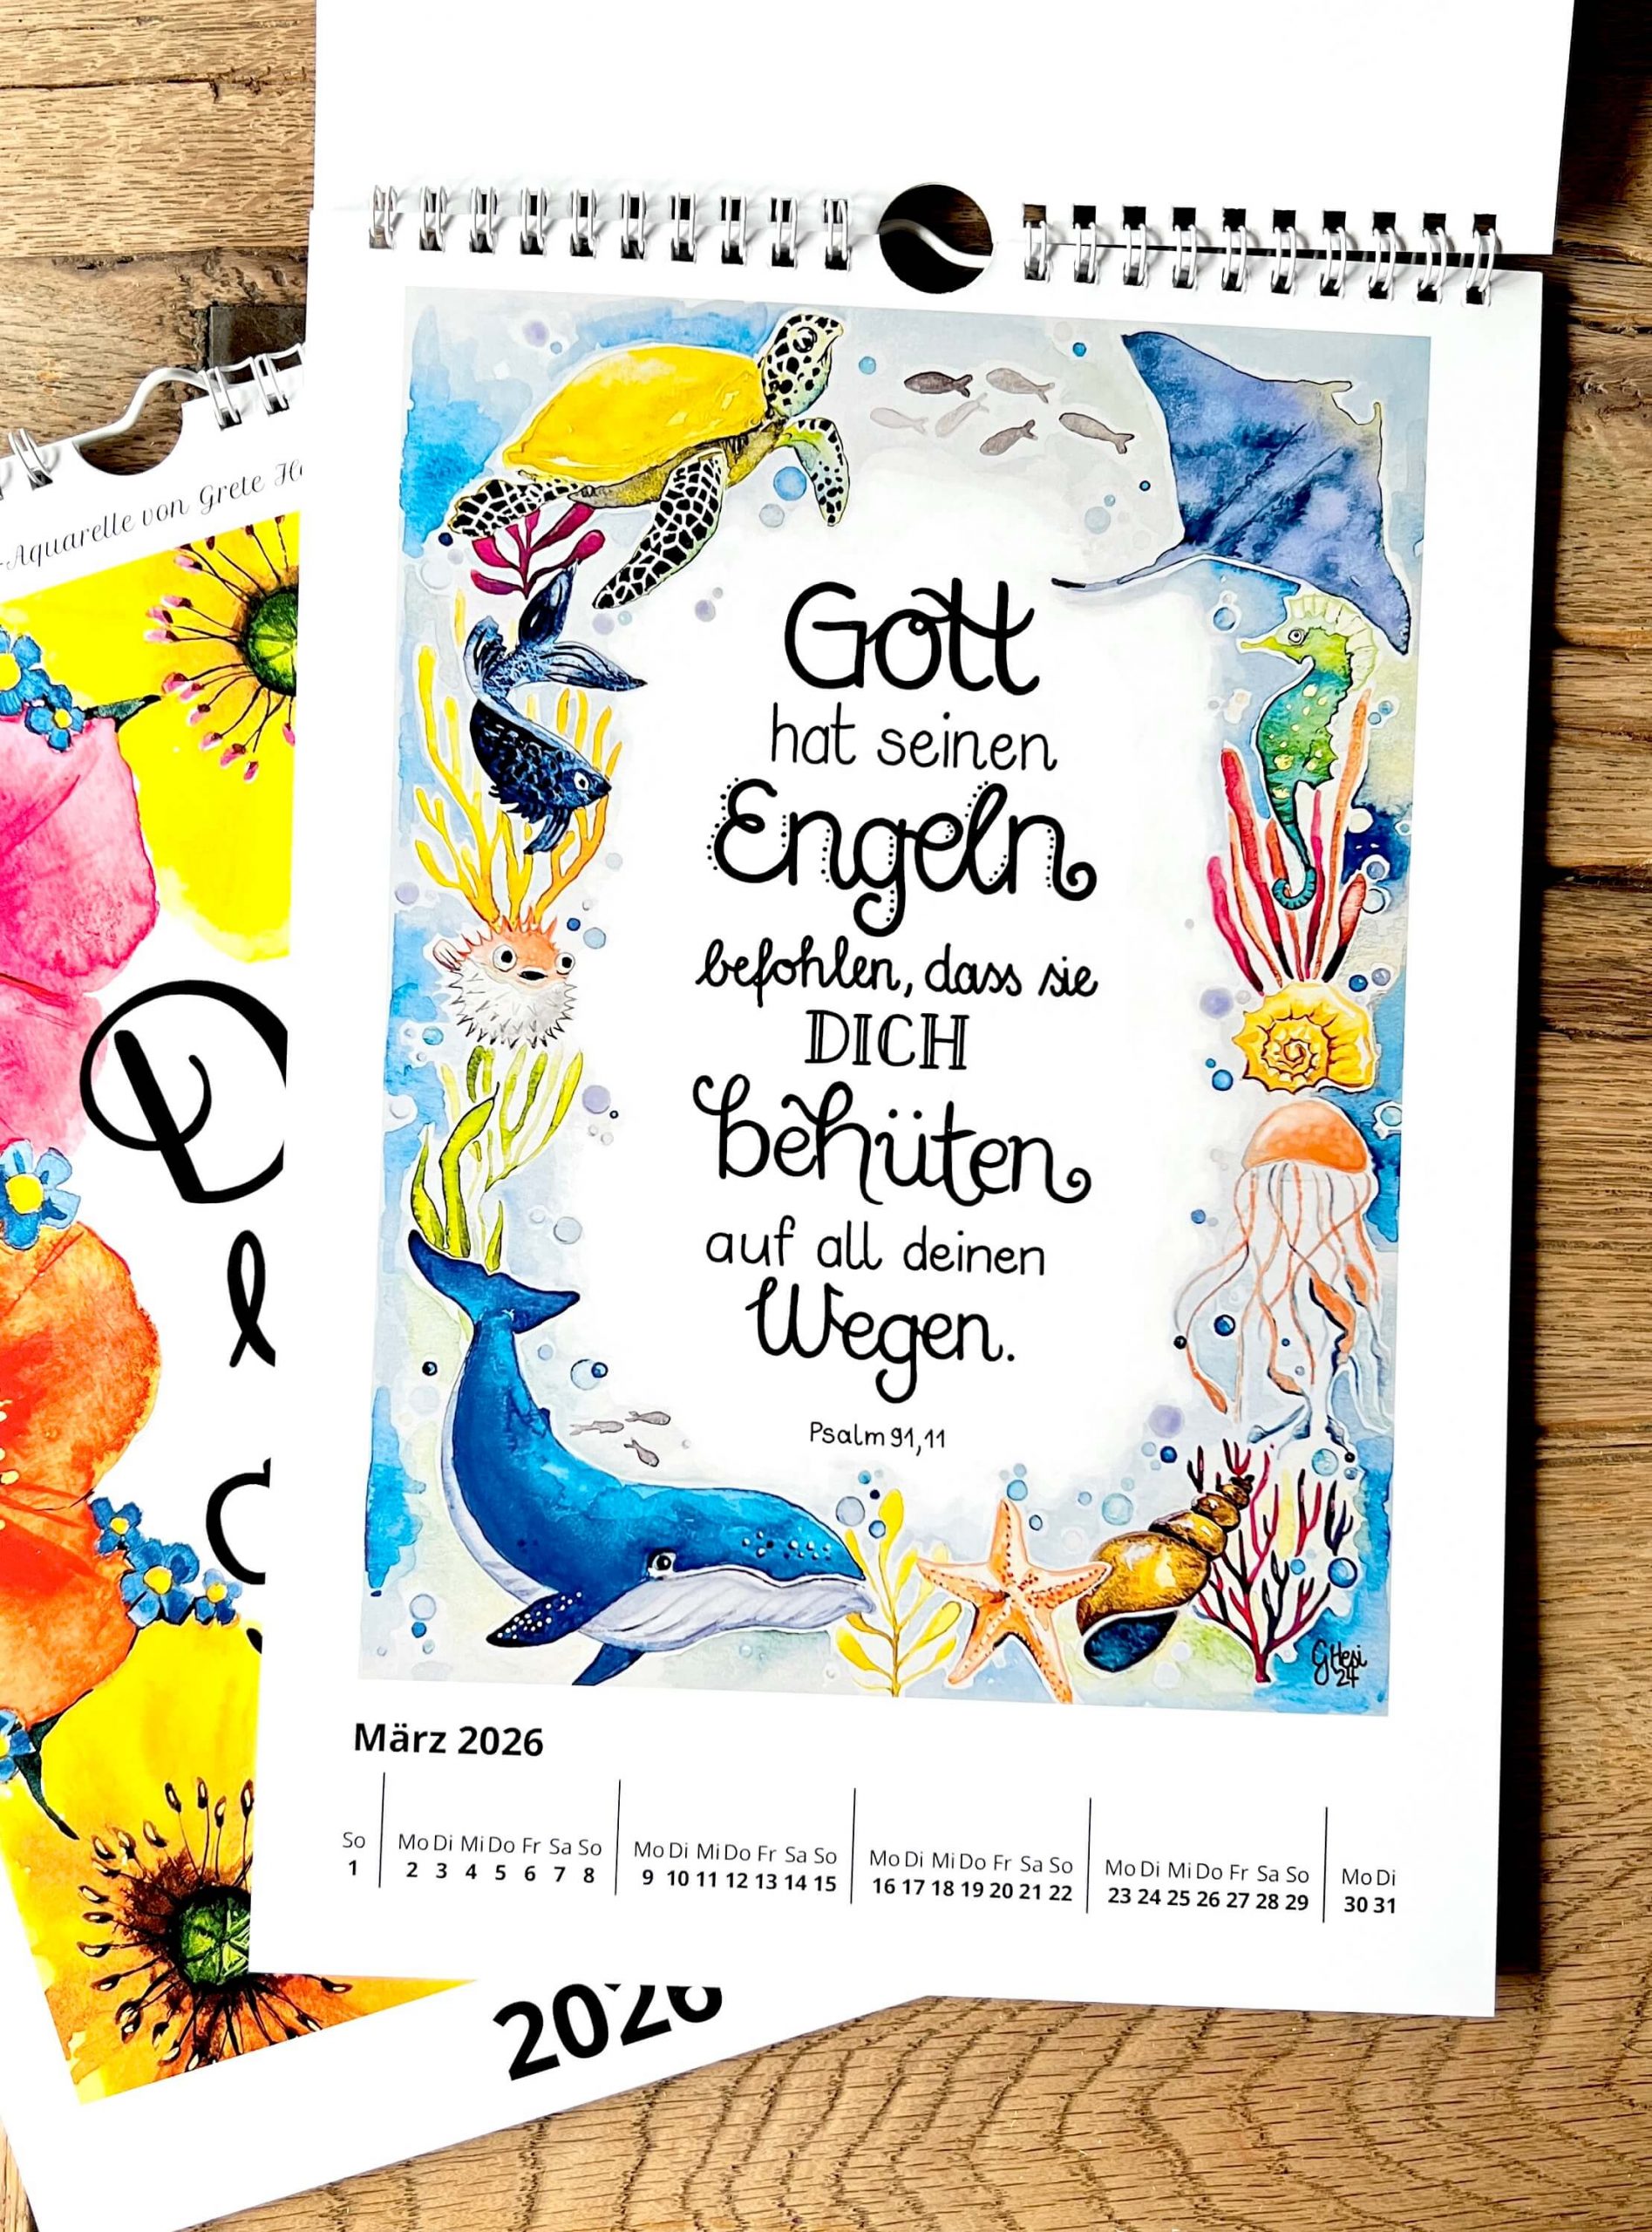 -Aquarelle von Grete
Gott
hat seinen
Engeln
befohlen, dass sie
DICH
behüten
auf all deinen
Wegen.
Psalm 91,11
GHesi
24
März 2026
So Mo Di Mi Do Fr Sa So Mo Di Mi Do Fr Sa So Mo Di Mi Do Fr Sa So Mo Di Mi Do Fr Sa So Mo Di
1 2 3 4 5 6 7 8 9 10 11 12 13 14 15 16 17 18 19 20 21 22 23 24 25 26 27 28 29 30 31
2026